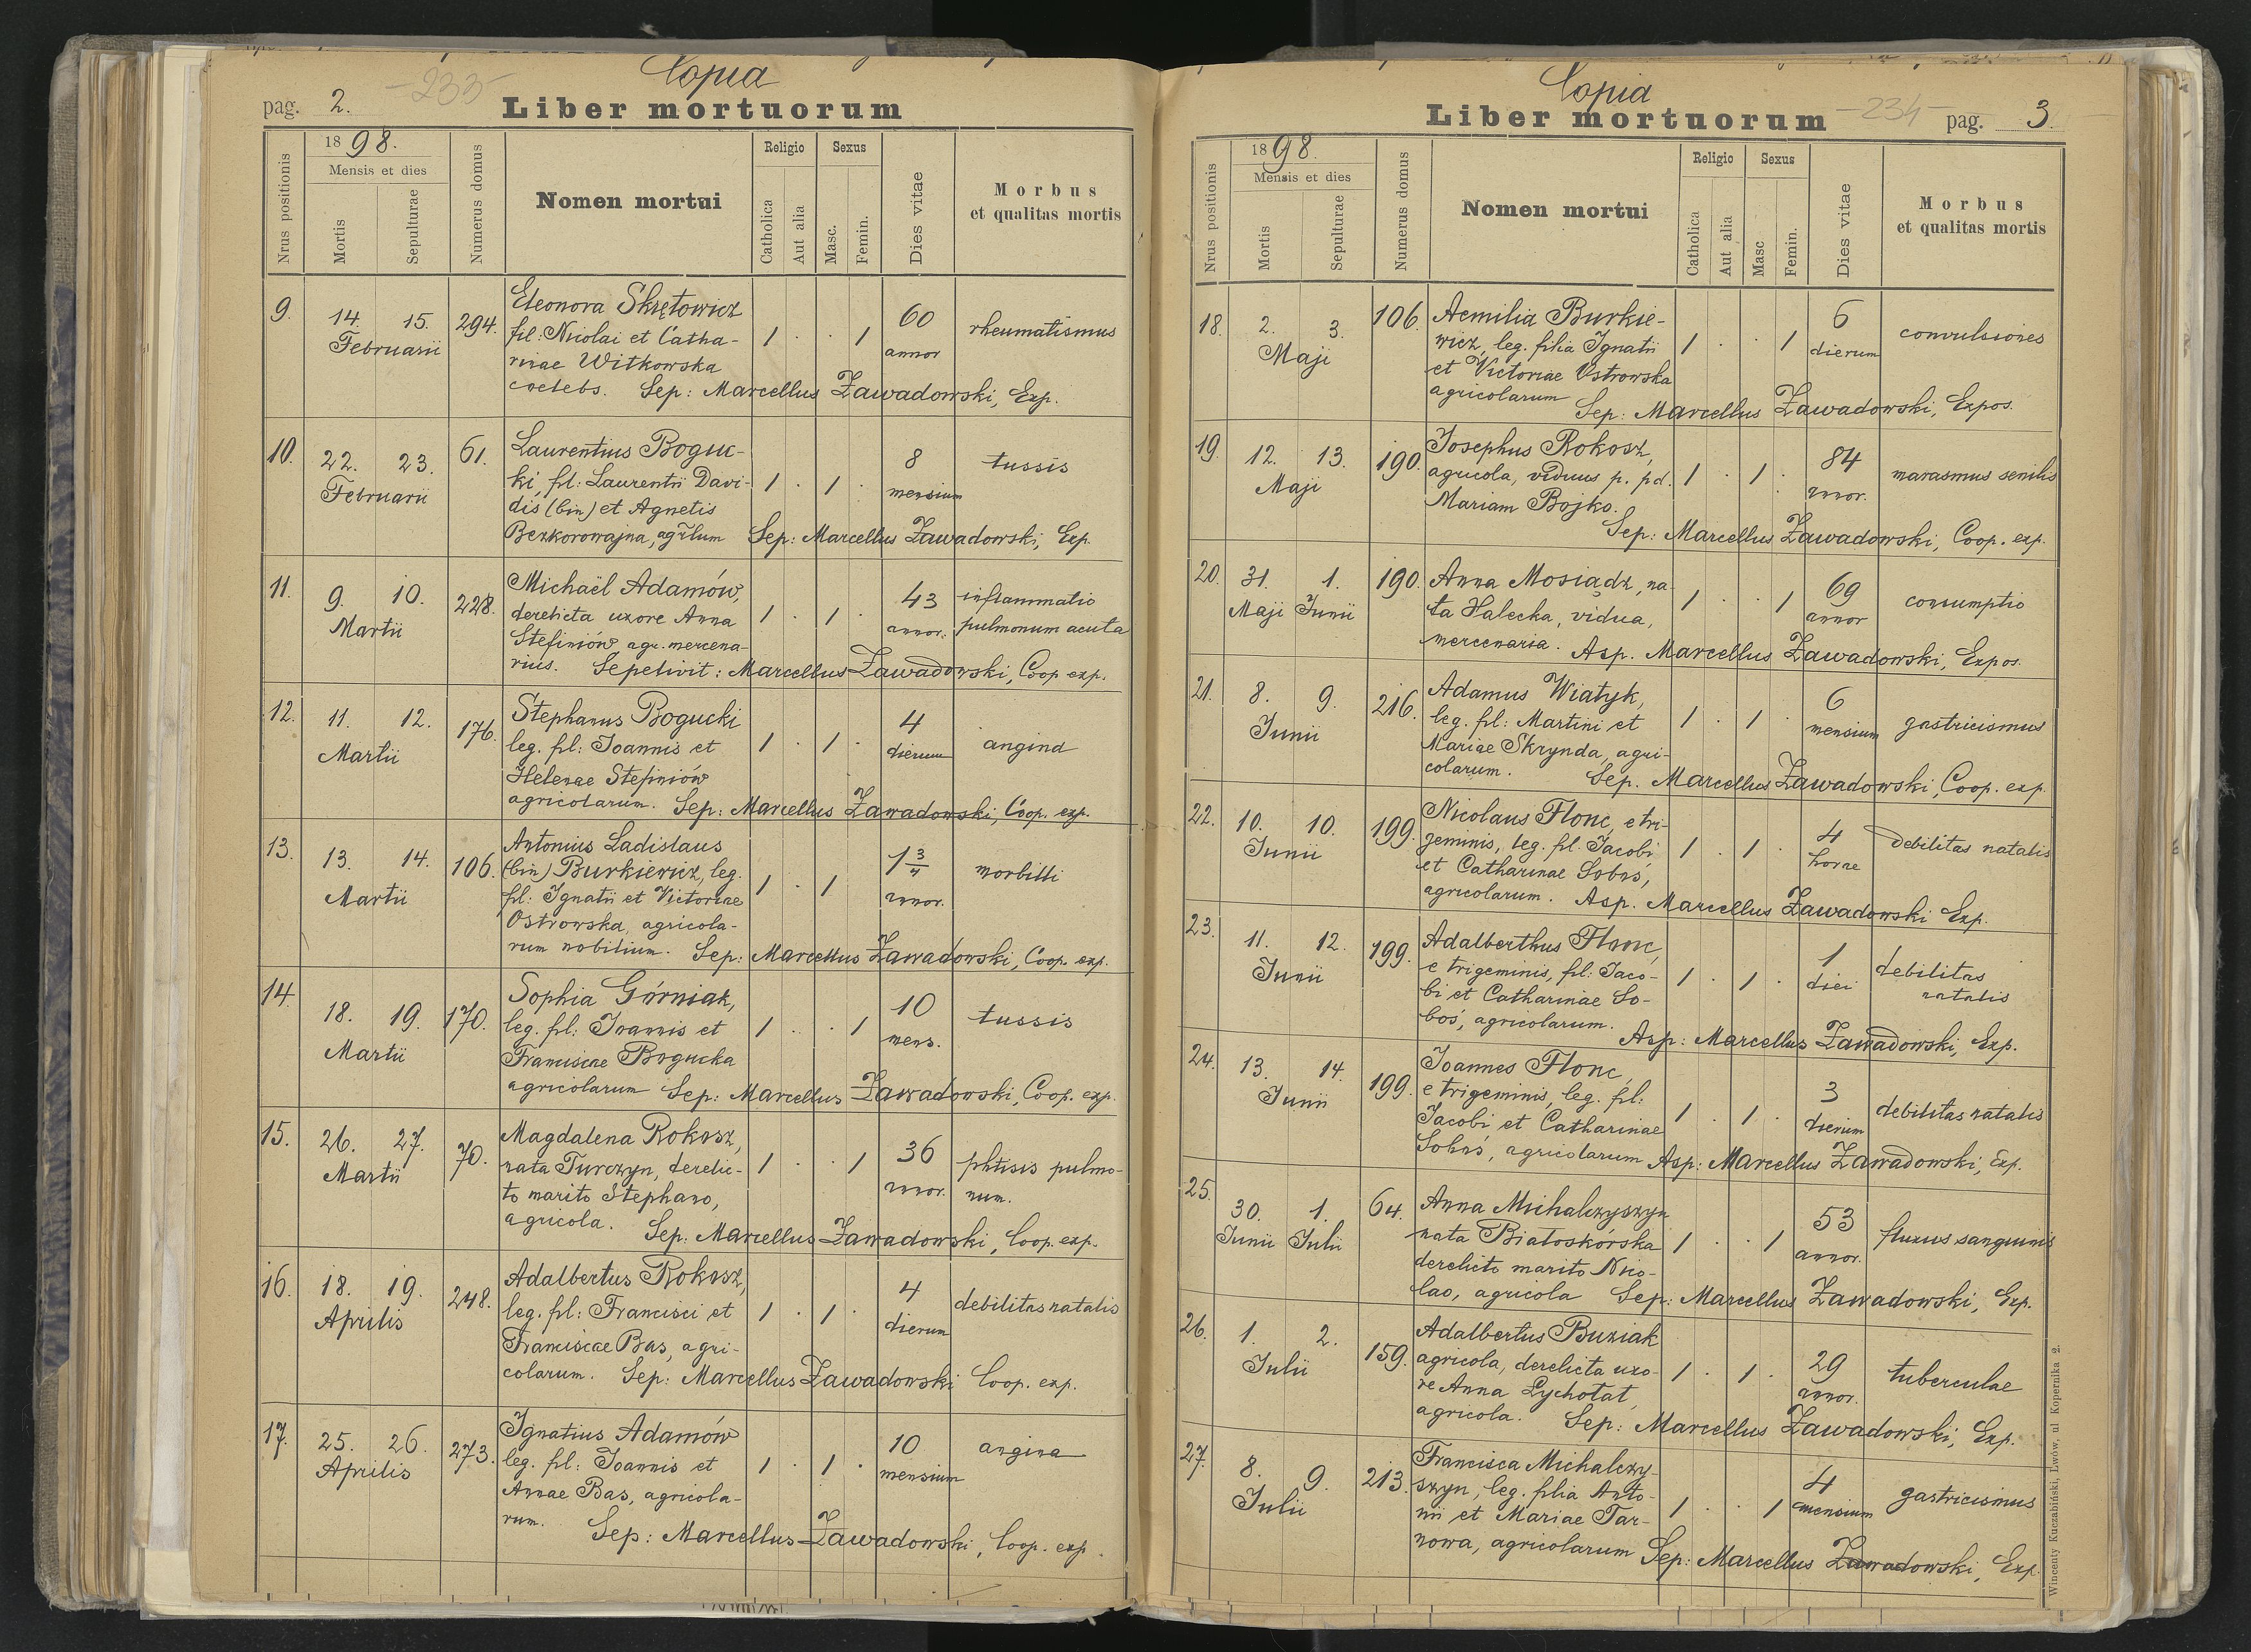 Copia
pag. 2. -233-
Liber mortuorum
Nrus positionis
1898.
Mensis et dies
Mortis
Sepulturae
Numerus domus
Nomen mortui
Religio
Catholica
Aut alia
Sexus
Masc.
Femin.
Dies vitae
Morbus
et qualitas mortis
9. 14. 15. 294. Eleonora Skrętowicz 60
Februarii fil: Nicolai et Catha- 1 . . 1 annor rheumatismus
rinae Witkowska
coelebs. Sep: Marcellus Zawadowski, Exp.
10. 22. 23. 61. Laurentius Boguc- 8 tussis
Februarii ki, fil: Laurentii Davi- 1 . 1 . mensium
dis (bin) et Agnetis
Bezkorowajna, agrlum Sep: Marcellus Zawadowski, Exp.
11. 9. 10. 228. Michaël Adamów, 43 inflammatio
Martii derelicta uxore Anna 1 . 1 . annor. pulmonum acuta
Stefiniów, agr. mercena-
rius. Sepelivit: Marcellus Zawadowski, Coop exp.
12. 11. 12. 176. Stephanus Bogucki 4
Martii leg. fil: Joannis et 1 . 1 . dierum angina
Helenae Stefiniów
agricolarum. Sep: Marcellus Zawadowski, Coop. exp.
13. 13. 14. 106. Antonius Ladislaus 1 3/4
Martii (bin) Burkiewicz, leg. 1 . 1 annor. morbilli
fil: Ignatii et Victoriae
Ostrowska, agricola-
rum nobilium. Sep: Marcellus Zawadowski, Coop. exp.
14. 18. 19. 170. Sophia Górniak, 10
Martii leg. fil: Joannis et 1 . . 1 mens. tussis
Franciscae Bogucka
agricolarum Sep: Marcellus Zawadowski, Coop. exp.
15. 26. 27. 70. Magdalena Rokosz, 36
Martii nata Turczyn, derelic- 1 . . 1 annor. phtisis pulmo-
to marito Stephano, num.
agricola. Sep: Marcellus Zawadowski, Coop. exp.
16. 18. 19. 248. Adalbertus Rokosz, 4
Aprilis leg. fil: Francisci et 1 . 1 . dierum debilitas natalis
Franciscae Bas, agri-
colarum. Sep: Marcellus Zawadowski Coop. exp.
17. 25. 26. 273. Ignatius Adamów 10 angina
Aprilis leg. fil: Joannis et 1 . 1 . mensium
Annae Bas, agricola-
rum. Sep: Marcellus Zawadowski, Coop. exp.
Copia
Liber mortuorum
-234- pag. 3.
Nrus positionis
1898.
Mensis et dies
Mortis
Sepulturae
Numerus domus
Nomen mortui
Religio
Catholica
Aut alia
Sexus
Masc
Femin.
Dies vitae
Morbus
et qualitas mortis
18. 2. 3. 106. Aemilia Burkie- 6
Maji wicz, leg. filia Ignatii 1 . . 1 dierum convulsiones
et Victoriae Ostrowska
agricolarum Sep: Marcellus Zawadowski, Expos.
19. 12. 13. 190. Josephus Rokosz, 84
Maji agricola, viduus p. pd. 1 . 1 . annor. marasmus senilis
Mariam Bojko.
Sep: Marcellus Zawadowski, Coop. exp.
20. 31. 1. 190. Anna Mosiądz, na- 69
Maji Junii ta Halecka, vidua, 1 . . 1 annor consumptio
mercenaria. Asp. Marcellus Zawadowski, Expos.
21. 8. 9. 216. Adamus Wiatyk, 6
Junii leg. fil: Martini et 1 . 1 . mensium gastricismus
Mariae Skrynda, agri-
colarum. Sep. Marcellus Zawadowski, Coop. exp.
22. 10. 10. 199. Nicolaus Flonc, e tri- 4
Junii geminis, leg. fil. Jacobi 1 . 1 . horae debilitas natalis
et Catharinae Soboś,
agricolarum. Asp. Marcellus Zawadowski Exp.
23. 11. 12. 199. Adalberthus Flonc, 1
Junii e trigeminis, fil: Jaco- 1 . 1 . diei debilitas
bi et Catharinae So- natalis
boś, agricolarum.
Asp: Marcellus Zawadowski, Exp.
24. 13. 14. 199. Joannes Flonc, 3
Junii e trigeminis, leg. fil: 1 . 1 . dierum debilitas natalis
Jacobi et Catharinae
Soboś, agricolarum Asp: Marcellus Zawadowski, Exp.
25. 30. 1. 64. Anna Michalczyszyn 53
Junii Julii nata Białoskórska 1 . . 1 annor. fluxus sanguinis
derelicto marito Nico-
lao, agricola Sep: Marcellus Zawadowski, Exp.
26. 1. 2. 159. Adalbertus Buziak 29
Julii agricola, derelicta uxo- 1 . 1 . annor. tuberculae
re Anna Lychotat,
agricola. Sep: Marcellus Zawadowski, Exp.
27. 8. 9. 213. Francisca Michalczy- 4
Julii szyn, leg. filia Anto- 1 . . 1 mensium gastricismus
nii et Mariae Tar-
nowa, agricolarum Sep: Marcellus Zawadowski, Exp.
Wincenty Kuczabiński, Lwów, ul Kopernika 2.